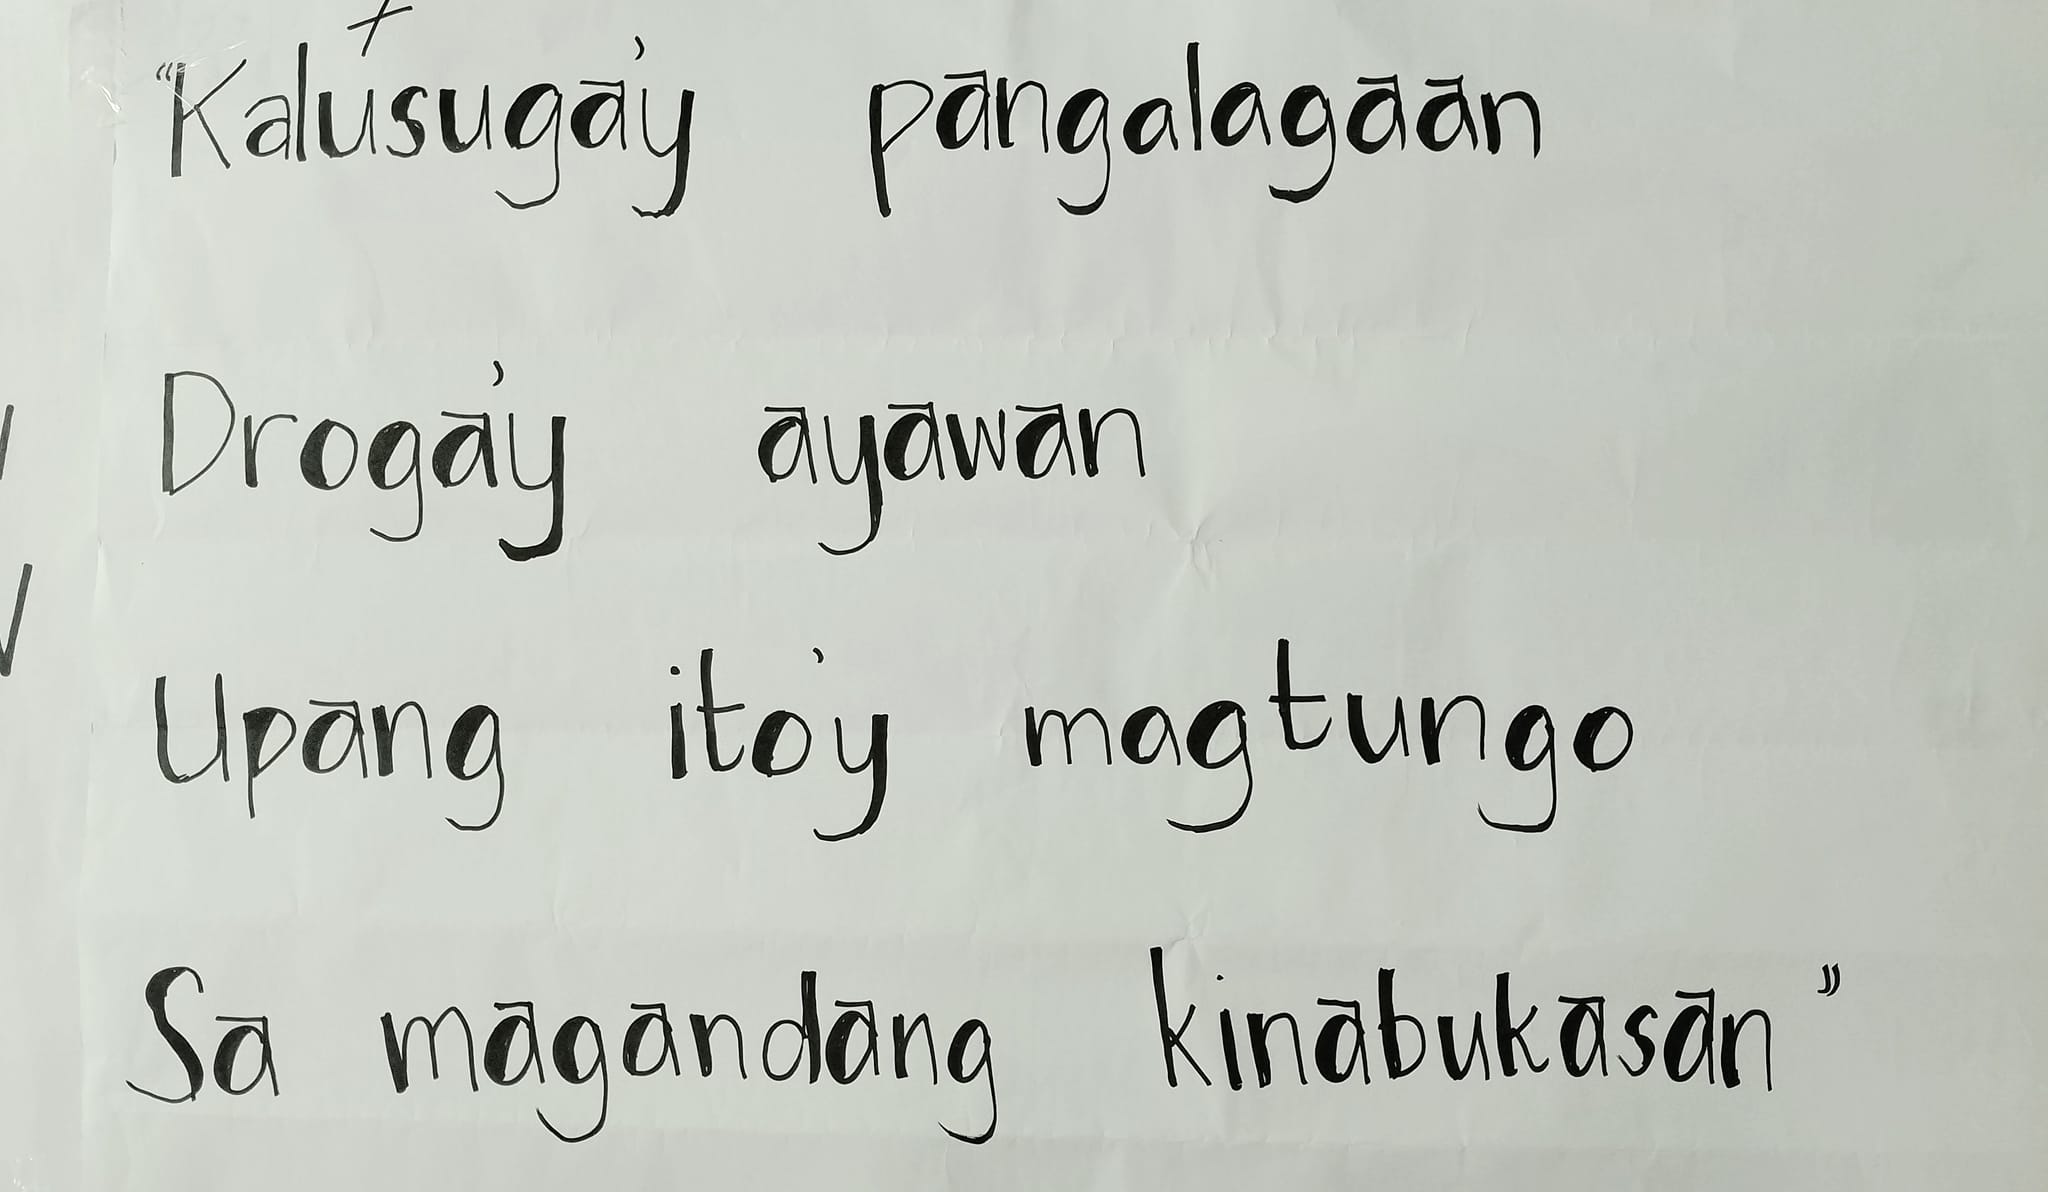 "Kalusuga'y pangalagaan
Droga'y ayawan
Upang ito'y magtungo
Sa magandang kinabukasan"